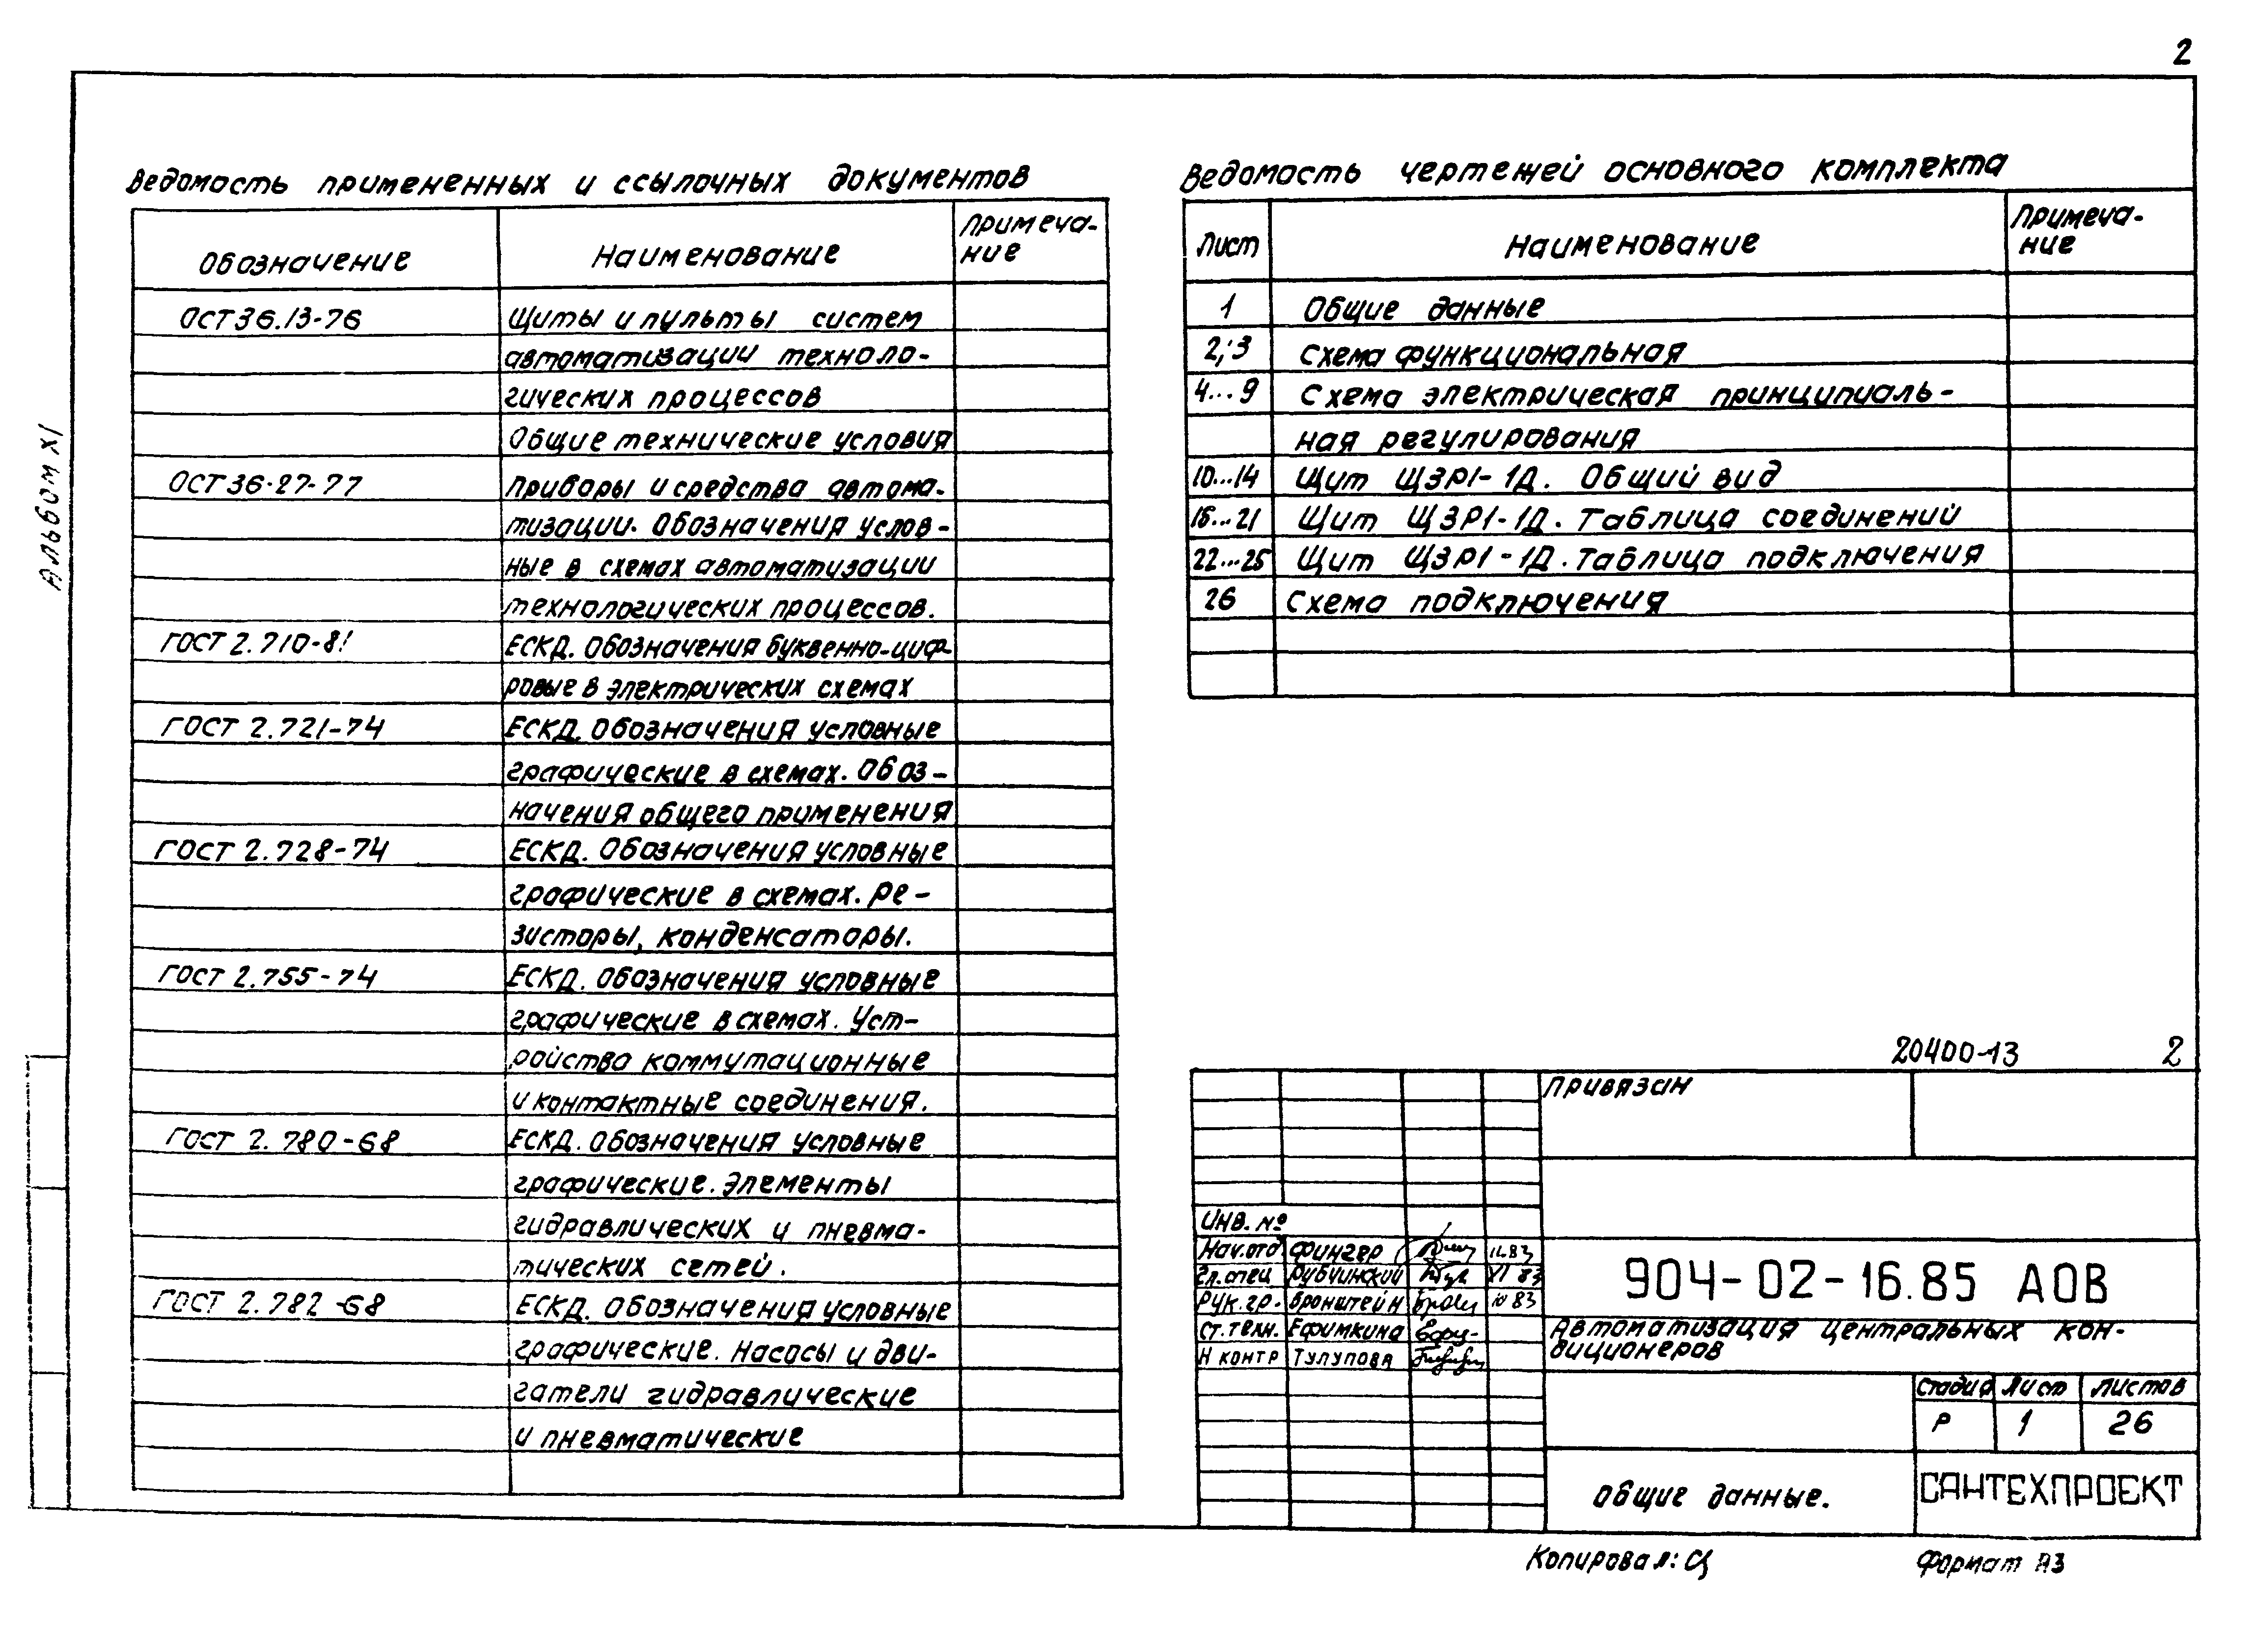 2
Альбом XI
Ведомость примененных и ссылочных документов
Обозначение Наименование Примеча-
ние
ОСТ 36.13-76 Щиты и пульты систем
автоматизации техноло-
гических процессов
Общие технические условия
ОСТ 36-27-77 Приборы и средства автома-
тизации. Обозначения услов-
ные в схемах автоматизации
технологических процессов.
ГОСТ 2.710-81 ЕСКД. Обозначения буквенно-циф-
ровые в электрических схемах
ГОСТ 2.721-74 ЕСКД. Обозначения условные
графические в схемах. Обоз-
начения общего применения
ГОСТ 2.728-74 ЕСКД. Обозначения условные
графические в схемах. Ре-
зисторы, конденсаторы.
ГОСТ 2.755-74 ЕСКД. Обозначения условные
графические в схемах. Уст-
ройства коммутационные
и контактные соединения.
ГОСТ 2.780-68 ЕСКД. Обозначения условные
графические. Элементы
гидравлических и пневма-
тических сетей.
ГОСТ 2.782-68 ЕСКД. Обозначения условные
графические. Насосы и дви-
гатели гидравлические
и пневматические
Ведомость чертежей основного комплекта
Лист Наименование Примеча-
ние
1 Общие данные
2; 3 Схема функциональная
4...9 Схема электрическая принципиаль-
ная регулирования
10...14 Щит ЩЗР1-1Д. Общий вид
16...21 Щит ЩЗР1-1Д. Таблица соединений
22...25 Щит ЩЗР1-1Д. Таблица подключения
26 Схема подключения
20400-13 2
Привязан
Инв. №
Нач.отд Фингер 11.83
Гл.спец Рубчинский XI 83
Рук.гр. Бронштейн IV 83
Ст.техн. Ефимкина
Н контр Тулупова
904-02-16.85 АОВ
Автоматизация центральных кон-
диционеров
Стадия Лист Листов
Р 1 26
Общие данные.
САНТЕХПРОЕКТ
Копировал: Формат А3